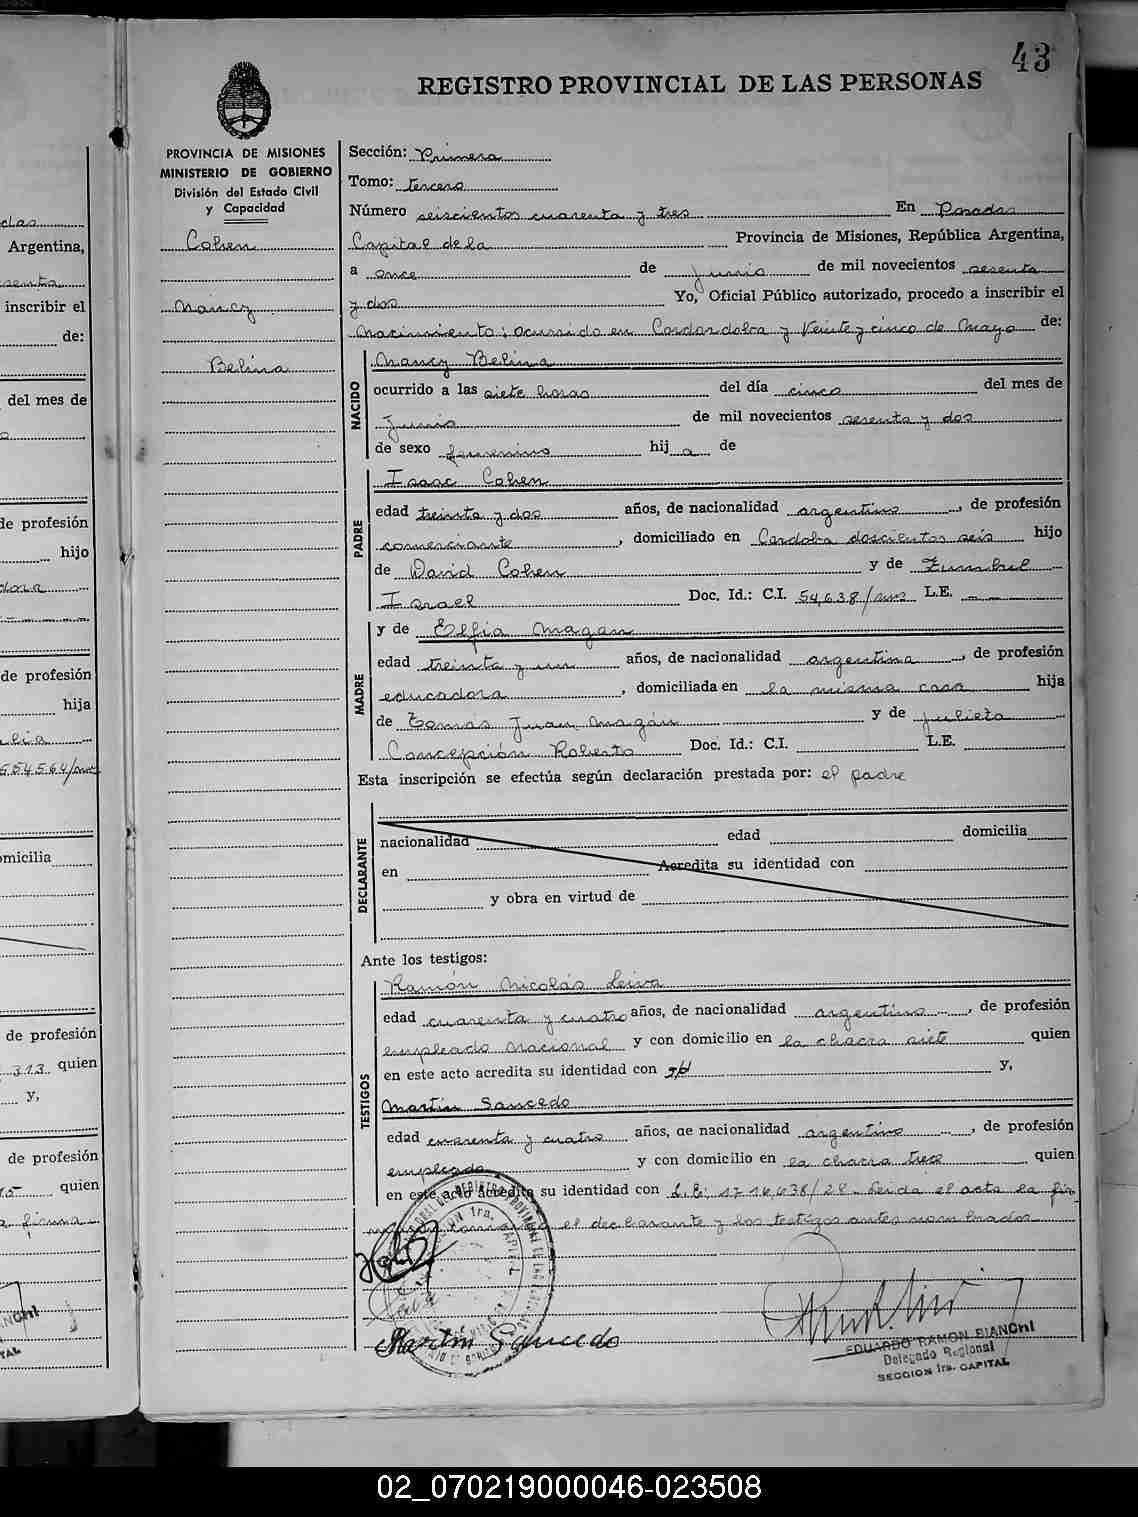 43
REGISTRO PROVINCIAL DE LAS PERSONAS
PROVINCIA DE MISIONES
MINISTERIO DE GOBIERNO
División del Estado Civil
y Capacidad
Cohen
Nancy
Belina
Sección: Primera
Tomo: tercero
Número seiscientos cuarenta y tres En Posadas
Capital de la Provincia de Misiones, República Argentina,
a once de junio de mil novecientos sesenta
y dos Yo, Oficial Público autorizado, procedo a inscribir el
nacimiento; ocurrido en Cordardoba y Veinte y cinco de Mayo de:
NACIDO
Nancy Belina
ocurrido a las siete horas del día cinco del mes de
Junio de mil novecientos sesenta y dos
de sexo femenino hij a de
PADRE
Isaac Cohen
edad treinta y dos años, de nacionalidad argentino, de profesión
comerciante, domiciliado en Cordoba doscientos seis hijo
de David Cohen y de Zumbul
Israel Doc. Id.: C.I. 54,638/ L.E. – –
MADRE
y de Elfia Magan
edad treinta y un años, de nacionalidad argentina, de profesión
educadora, domiciliada en la misma casa hija
de Tomas Juan Magán y de Julieta
Concepción Roberto Doc. Id.: C.I. L.E.
Esta inscripción se efectúa según declaración prestada por: el padre
DECLARANTE
nacionalidad edad domicilia
en Acredita su identidad con
y obra en virtud de
Ante los testigos:
TESTIGOS
Ramón Nicolás Leiva
edad cuarenta y cuatro años, de nacionalidad argentino, de profesión
empleado nacional y con domicilio en la chacra siete quien
en este acto acredita su identidad con y,
Martin Saucedo
edad cuarenta y cuatro años, de nacionalidad argentino, de profesión
empleado y con domicilio en la chacra trece quien
en este acto acredita su identidad con L.E. Leida el acta la fir
el declarante y los testigos antes nombrados
Martin Saucedo
EDUARDO RAMON BIANCHI
Delegado Regional
SECCION 1ra. CAPITAL
Argentina,
inscribir el
de:
del mes de
de profesión
hijo
de profesión
hija
omicilia
de profesión
313 quien
y,
de profesión
quien
firma
02_070219000046-023508